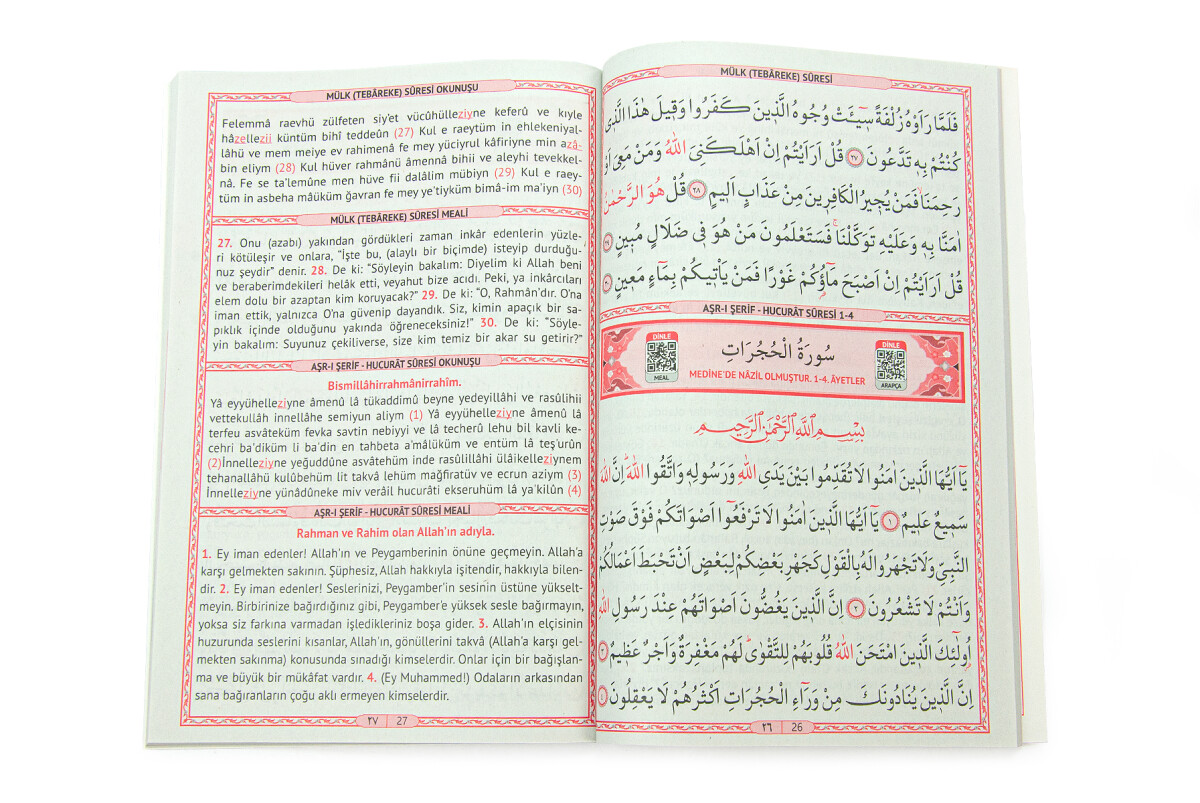 MÜLK (TEBÂREKE) SÛRESİ OKUNUŞU
Felemmâ raevhü zülfeten siy'et vücûhülleziyne keferû ve kıyle
hâzellezii küntüm bihî teddeûn (27) Kul e raeytüm in ehlekeniyal-
lâhü ve mem meiye ev rahimenâ fe mey yüciyrul kâfiriyne min azâ-
bin eliym (28) Kul hüver rahmânü âmennâ bihii ve aleyhi tevekkel-
nâ. Fe se ta'lemûne men hüve fii dalâlim mübiyn (29) Kul e raey-
tüm in asbeha mâüküm ğavran fe mey ye'tiyküm bimâ-im ma'iyn (30)
MÜLK (TEBÂREKE) SÛRESİ MEALİ
27. Onu (azabı) yakından gördükleri zaman inkâr edenlerin yüzle-
ri kötüleşir ve onlara, “İşte bu, (alaylı bir biçimde) isteyip durduğu-
nuz şeydir” denir. 28. De ki: “Söyleyin bakalım: Diyelim ki Allah beni
ve beraberimdekileri helâk etti, veyahut bize acıdı. Peki, ya inkârcıları
elem dolu bir azaptan kim koruyacak?” 29. De ki: “O, Rahmân'dır. O'na
iman ettik, yalnızca O'na güvenip dayandık. Siz, kimin apaçık bir sa-
pıklık içinde olduğunu yakında öğreneceksiniz!” 30. De ki: “Söyle-
yin bakalım: Suyunuz çekiliverse, size kim temiz bir akar su getirir?”
AŞR-I ŞERİF - HUCURÂT SÛRESİ OKUNUŞU
Bismillâhirrahmânirrahîm.
Yâ eyyühelleziyne âmenû lâ tükaddimû beyne yedeyillâhi ve rasûlihii
vettekullâh innellâhe semiyun aliym (1) Yâ eyyühelleziyne âmenû lâ
terfeu asvâteküm fevka savtin nebiyyi ve lâ techerû lehu bil kavli ke-
cehri ba'diküm li ba'din en tahbeta a'mâlüküm ve entüm lâ teş'urûn
(2)İnnelleziyne yeğuddûne asvâtehüm inde rasûlillâhi ülâikelleziynem
tehanallâhü kulûbehüm lit takvâ lehüm mağfiratüv ve ecrun aziym (3)
İnnelleziyne yünâdûneke miv verâil hucurâti ekseruhüm lâ ya'kilûn (4)
AŞR-I ŞERİF - HUCURÂT SÛRESİ MEALİ
Rahman ve Rahim olan Allah'ın adıyla.
1. Ey iman edenler! Allah'ın ve Peygamberinin önüne geçmeyin. Allah'a
karşı gelmekten sakının. Şüphesiz, Allah hakkıyla işitendir, hakkıyla bilen-
dir. 2. Ey iman edenler! Seslerinizi, Peygamber'in sesinin üstüne yükselt-
meyin. Birbirinize bağırdığınız gibi, Peygamber'e yüksek sesle bağırmayın,
yoksa siz farkına varmadan işledikleriniz boşa gider. 3. Allah'ın elçisinin
huzurunda seslerini kısanlar, Allah'ın, gönüllerini takvâ (Allah'a karşı gel-
mekten sakınma) konusunda sınadığı kimselerdir. Onlar için bir bağışlan-
ma ve büyük bir mükâfat vardır. 4. (Ey Muhammed!) Odaların arkasından
sana bağıranların çoğu aklı ermeyen kimselerdir.
٢٧ 27
MÜLK (TEBÂREKE) SÛRESİ
فَلَمَّا رَاَوْهُ زُلْفَةً سٖٓيئَتْ وُجُوهُ الَّذٖينَ كَفَرُوا وَقٖيلَ هٰذَا الَّذٖى
كُنْتُمْ بِهٖ تَدَّعُونَ ٢٧ قُلْ اَرَاَيْتُمْ اِنْ اَهْلَكَنِىَ اللّٰهُ وَمَنْ مَعِىَ اَوْ
رَحِمَنَا فَمَنْ يُجٖيرُ الْكَافِرٖينَ مِنْ عَذَابٍ اَلٖيمٍ ٢٨ قُلْ هُوَ الرَّحْمٰنُ
اٰمَنَّا بِهٖ وَعَلَيْهِ تَوَكَّلْنَا فَسَتَعْلَمُونَ مَنْ هُوَ فٖى ضَلَالٍ مُبٖينٍ ٢٩
قُلْ اَرَاَيْتُمْ اِنْ اَصْبَحَ مَٓاؤُكُمْ غَوْرًا فَمَنْ يَأْتٖيكُمْ بِمَٓاءٍ مَعٖينٍ ٣٠
AŞR-I ŞERİF - HUCURÂT SÛRESİ 1-4
DİNLE
MEAL
سُورَةُ الْحُجُرَاتِ
MEDİNE'DE NÂZİL OLMUŞTUR. 1-4. ÂYETLER
DİNLE
ARAPÇA
بِسْمِ اللّٰهِ الرَّحْمٰنِ الرَّحٖيمِ
يَٓا اَيُّهَا الَّذٖينَ اٰمَنُوا لَا تُقَدِّمُوا بَيْنَ يَدَىِ اللّٰهِ وَرَسُولِهٖ وَاتَّقُوا اللّٰهَ اِنَّ اللّٰهَ
سَمٖيعٌ عَلٖيمٌ ١ يَٓا اَيُّهَا الَّذٖينَ اٰمَنُوا لَا تَرْفَعُٓوا اَصْوَاتَكُمْ فَوْقَ صَوْتِ
النَّبِىِّ وَلَا تَجْهَرُوا لَهُ بِالْقَوْلِ كَجَهْرِ بَعْضِكُمْ لِبَعْضٍ اَنْ تَحْبَطَ اَعْمَالُكُمْ
وَاَنْتُمْ لَا تَشْعُرُونَ ٢ اِنَّ الَّذٖينَ يَغُضُّونَ اَصْوَاتَهُمْ عِنْدَ رَسُولِ اللّٰهِ
اُولٰٓئِكَ الَّذٖينَ امْتَحَنَ اللّٰهُ قُلُوبَهُمْ لِلتَّقْوٰى لَهُمْ مَغْفِرَةٌ وَاَجْرٌ عَظٖيمٌ ٣
اِنَّ الَّذٖينَ يُنَادُونَكَ مِنْ وَرَٓاءِ الْحُجُرَاتِ اَكْثَرُهُمْ لَا يَعْقِلُونَ ٤
٢٦ 26